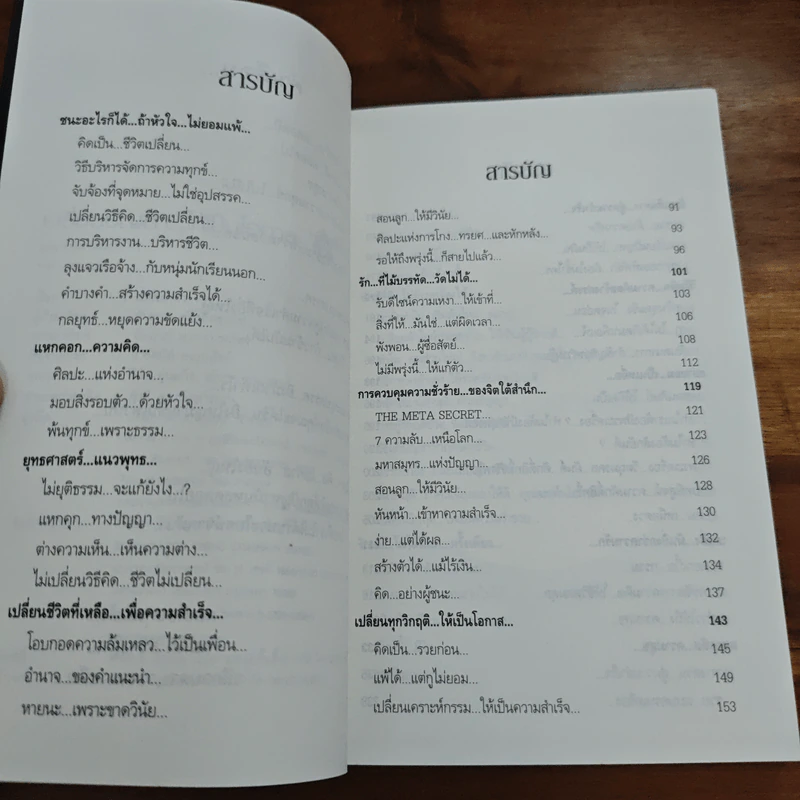 สารบัญ
ชนะอะไรก็ได้...ถ้าหัวใจ...ไม่ยอมแพ้...
คิดเป็น...ชีวิตเปลี่ยน...
วิธีบริหารจัดการความทุกข์...
จับจ้องที่จุดหมาย...ไม่ใช่อุปสรรค...
เปลี่ยนวิธีคิด...ชีวิตเปลี่ยน...
การบริหารงาน...บริหารชีวิต...
ลุงแจวเรือจ้าง...กับหนุ่มนักเรียนนอก...
คำบางคำ...สร้างความสำเร็จได้...
กลยุทธ์...หยุดความขัดแย้ง...
แหกคอก...ความคิด...
ศิลปะ...แห่งอำนาจ...
มอบสิ่งรอบตัว...ด้วยหัวใจ...
พ้นทุกข์...เพราะธรรม...
ยุทธศาสตร์...แนวพุทธ...
ไม่ยุติธรรม...จะแก้ยังไง...?
แหกคุก...ทางปัญญา...
ต่างความเห็น...เห็นความต่าง...
ไม่เปลี่ยนวิธีคิด...ชีวิตไม่เปลี่ยน...
เปลี่ยนชีวิตที่เหลือ...เพื่อความสำเร็จ...
โอบกอดความล้มเหลว...ไว้เป็นเพื่อน...
อำนาจ...ของคำแนะนำ...
หายนะ...เพราะขาดวินัย...
สารบัญ
สอนลูก...ให้มีวินัย... 91
ศิลปะแห่งการโกง...ทรยศ...และหักหลัง... 93
รอให้ถึงพรุ่งนี้...ก็สายไปแล้ว... 96
รัก...ที่ไม้บรรทัด...วัดไม่ได้... 101
รับดีไซน์ความเหงา...ให้เข้าที่... 103
สิ่งที่ให้...มันใช่...แต่ผิดเวลา... 106
พังพอน...ผู้ซื่อสัตย์... 108
ไม่มีพรุ่งนี้...ให้แก้ตัว... 112
การควบคุมความชั่วร้าย...ของจิตใต้สำนึก... 119
THE META SECRET... 121
7 ความลับ...เหนือโลก... 123
มหาสมุทร...แห่งปัญญา... 126
สอนลูก...ให้มีวินัย... 128
หันหน้า...เข้าหาความสำเร็จ... 130
ง่าย...แต่ได้ผล... 132
สร้างตัวได้...แม้ไร้เงิน... 134
คิด...อย่างผู้ชนะ... 137
เปลี่ยนทุกวิกฤติ...ให้เป็นโอกาส... 143
คิดเป็น...รวยก่อน... 145
แพ้ได้...แต่กูไม่ยอม... 149
เปลี่ยนเคราะห์กรรม...ให้เป็นความสำเร็จ... 153